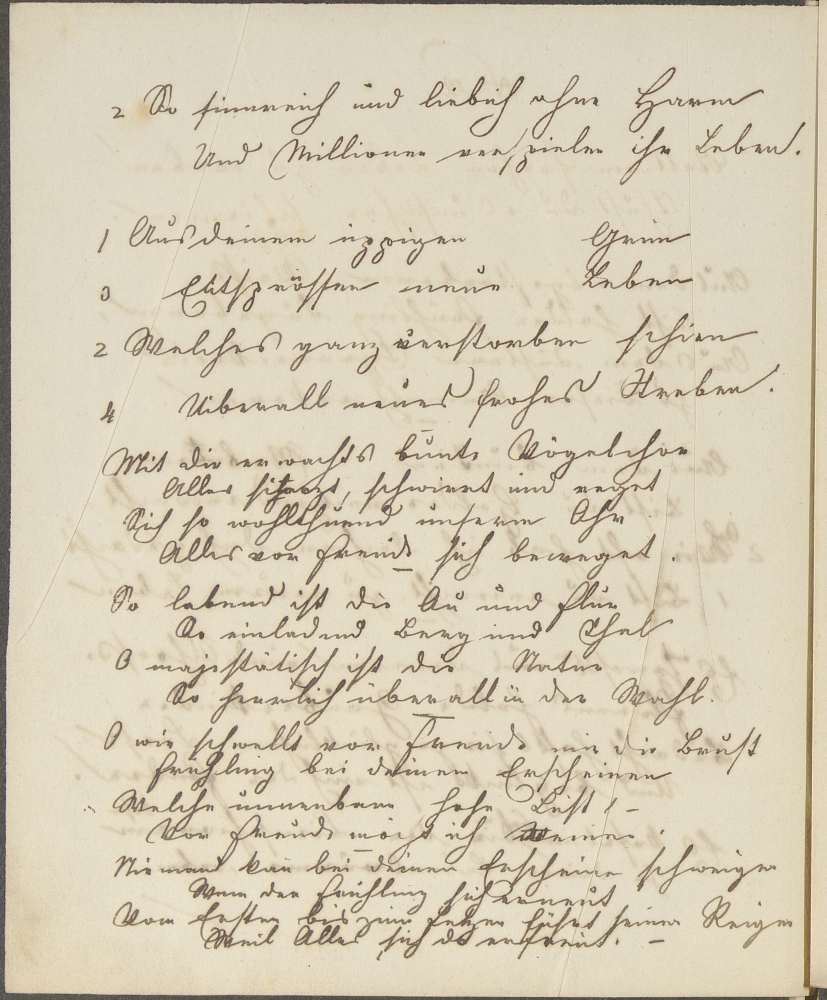 2 So sinnreich und liebich ohne Harm
Und Millionen verspielen ihr Leben.
1 Aus deinem üppigen Grün
3 Entsprössen neue Leben
2 Welches ganz verstorben schien
4 Uiberall neues frohes Streben.
Mit dir erwachts bunte Vögelchor
Alles scherzt, schwirrt und reget
Sich so wohlthuend unserm Ohr
Alles vor Freude sich beweget.
So labend ist die Au und Flur
So einladend Berg und Thal
O majestätisch ist die Natur
So herrlich überall in der Wahl.
O wie schwellt vor Freude mir die Brust
Frühling bei deinem Erscheinen
Welche unnenbare hohe Lust! –
Vor Freude möcht ich weinen.
Niemand kan bei deinen Erscheine schweigen
Wenn der Frühling sich erneut
Vom Ersten bis zum Letzen führt seinen Reigen
Weil Alles sich da erfreut. –